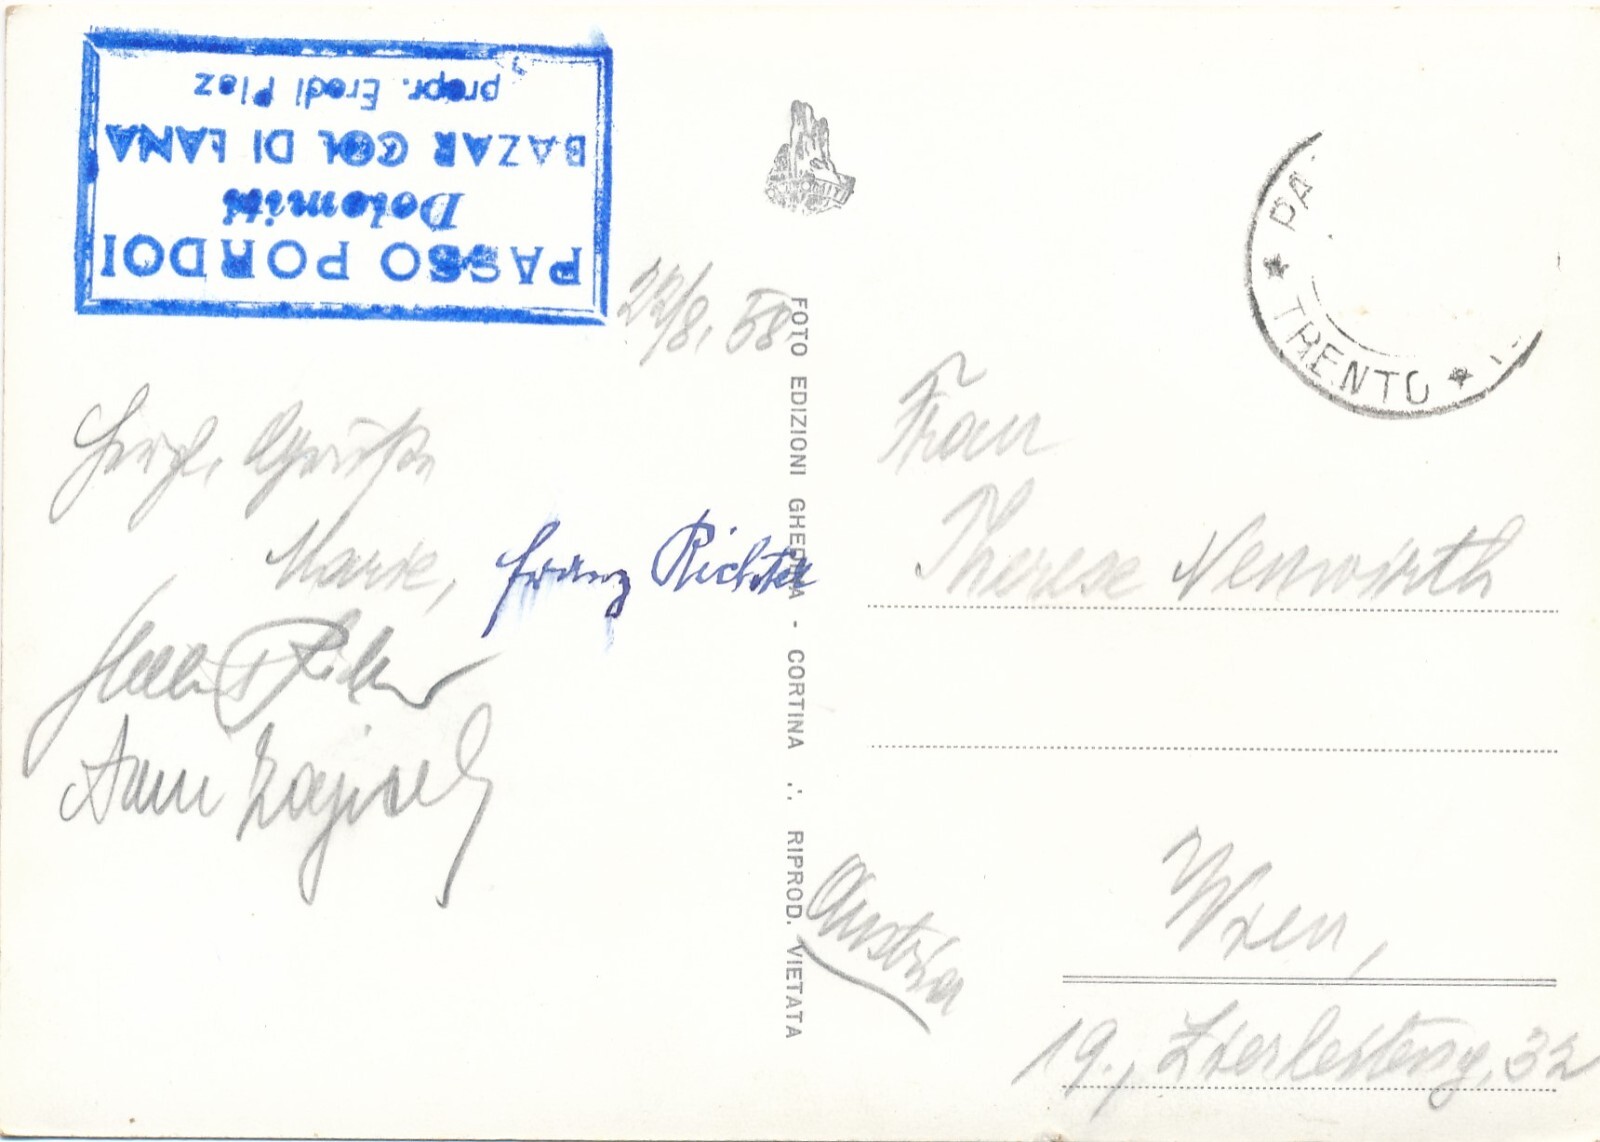 PASSO PORDOI
Dolomiti
BAZAR COL DI LANA
propr. Eredi Plaz
22/8. 58.
Herzl. Grüße
Marie, Franz Richter
FOTO EDIZIONI GHEDINA - CORTINA ∴ RIPROD. VIETATA
PA
★ TRENTO ★
Frau
Therese Neuwirth
Wien,
Austria
19., 32